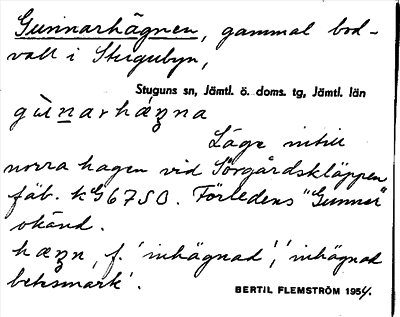 Gunnarhägnen, gammal bod-
vall i Stugubyn,
Stuguns sn, Jämtl. ö. doms. tg, Jämtl. län
gùnarhǽŋna
Låge intill
norra hagen vid Sörgårdskläppens
fäb. kG 6750. Förledens "Gunnar"
okänd.
hæŋn, f. 'inhägnad', 'inhägnad
betesmark'.
BERTIL FLEMSTRÖM 1954.